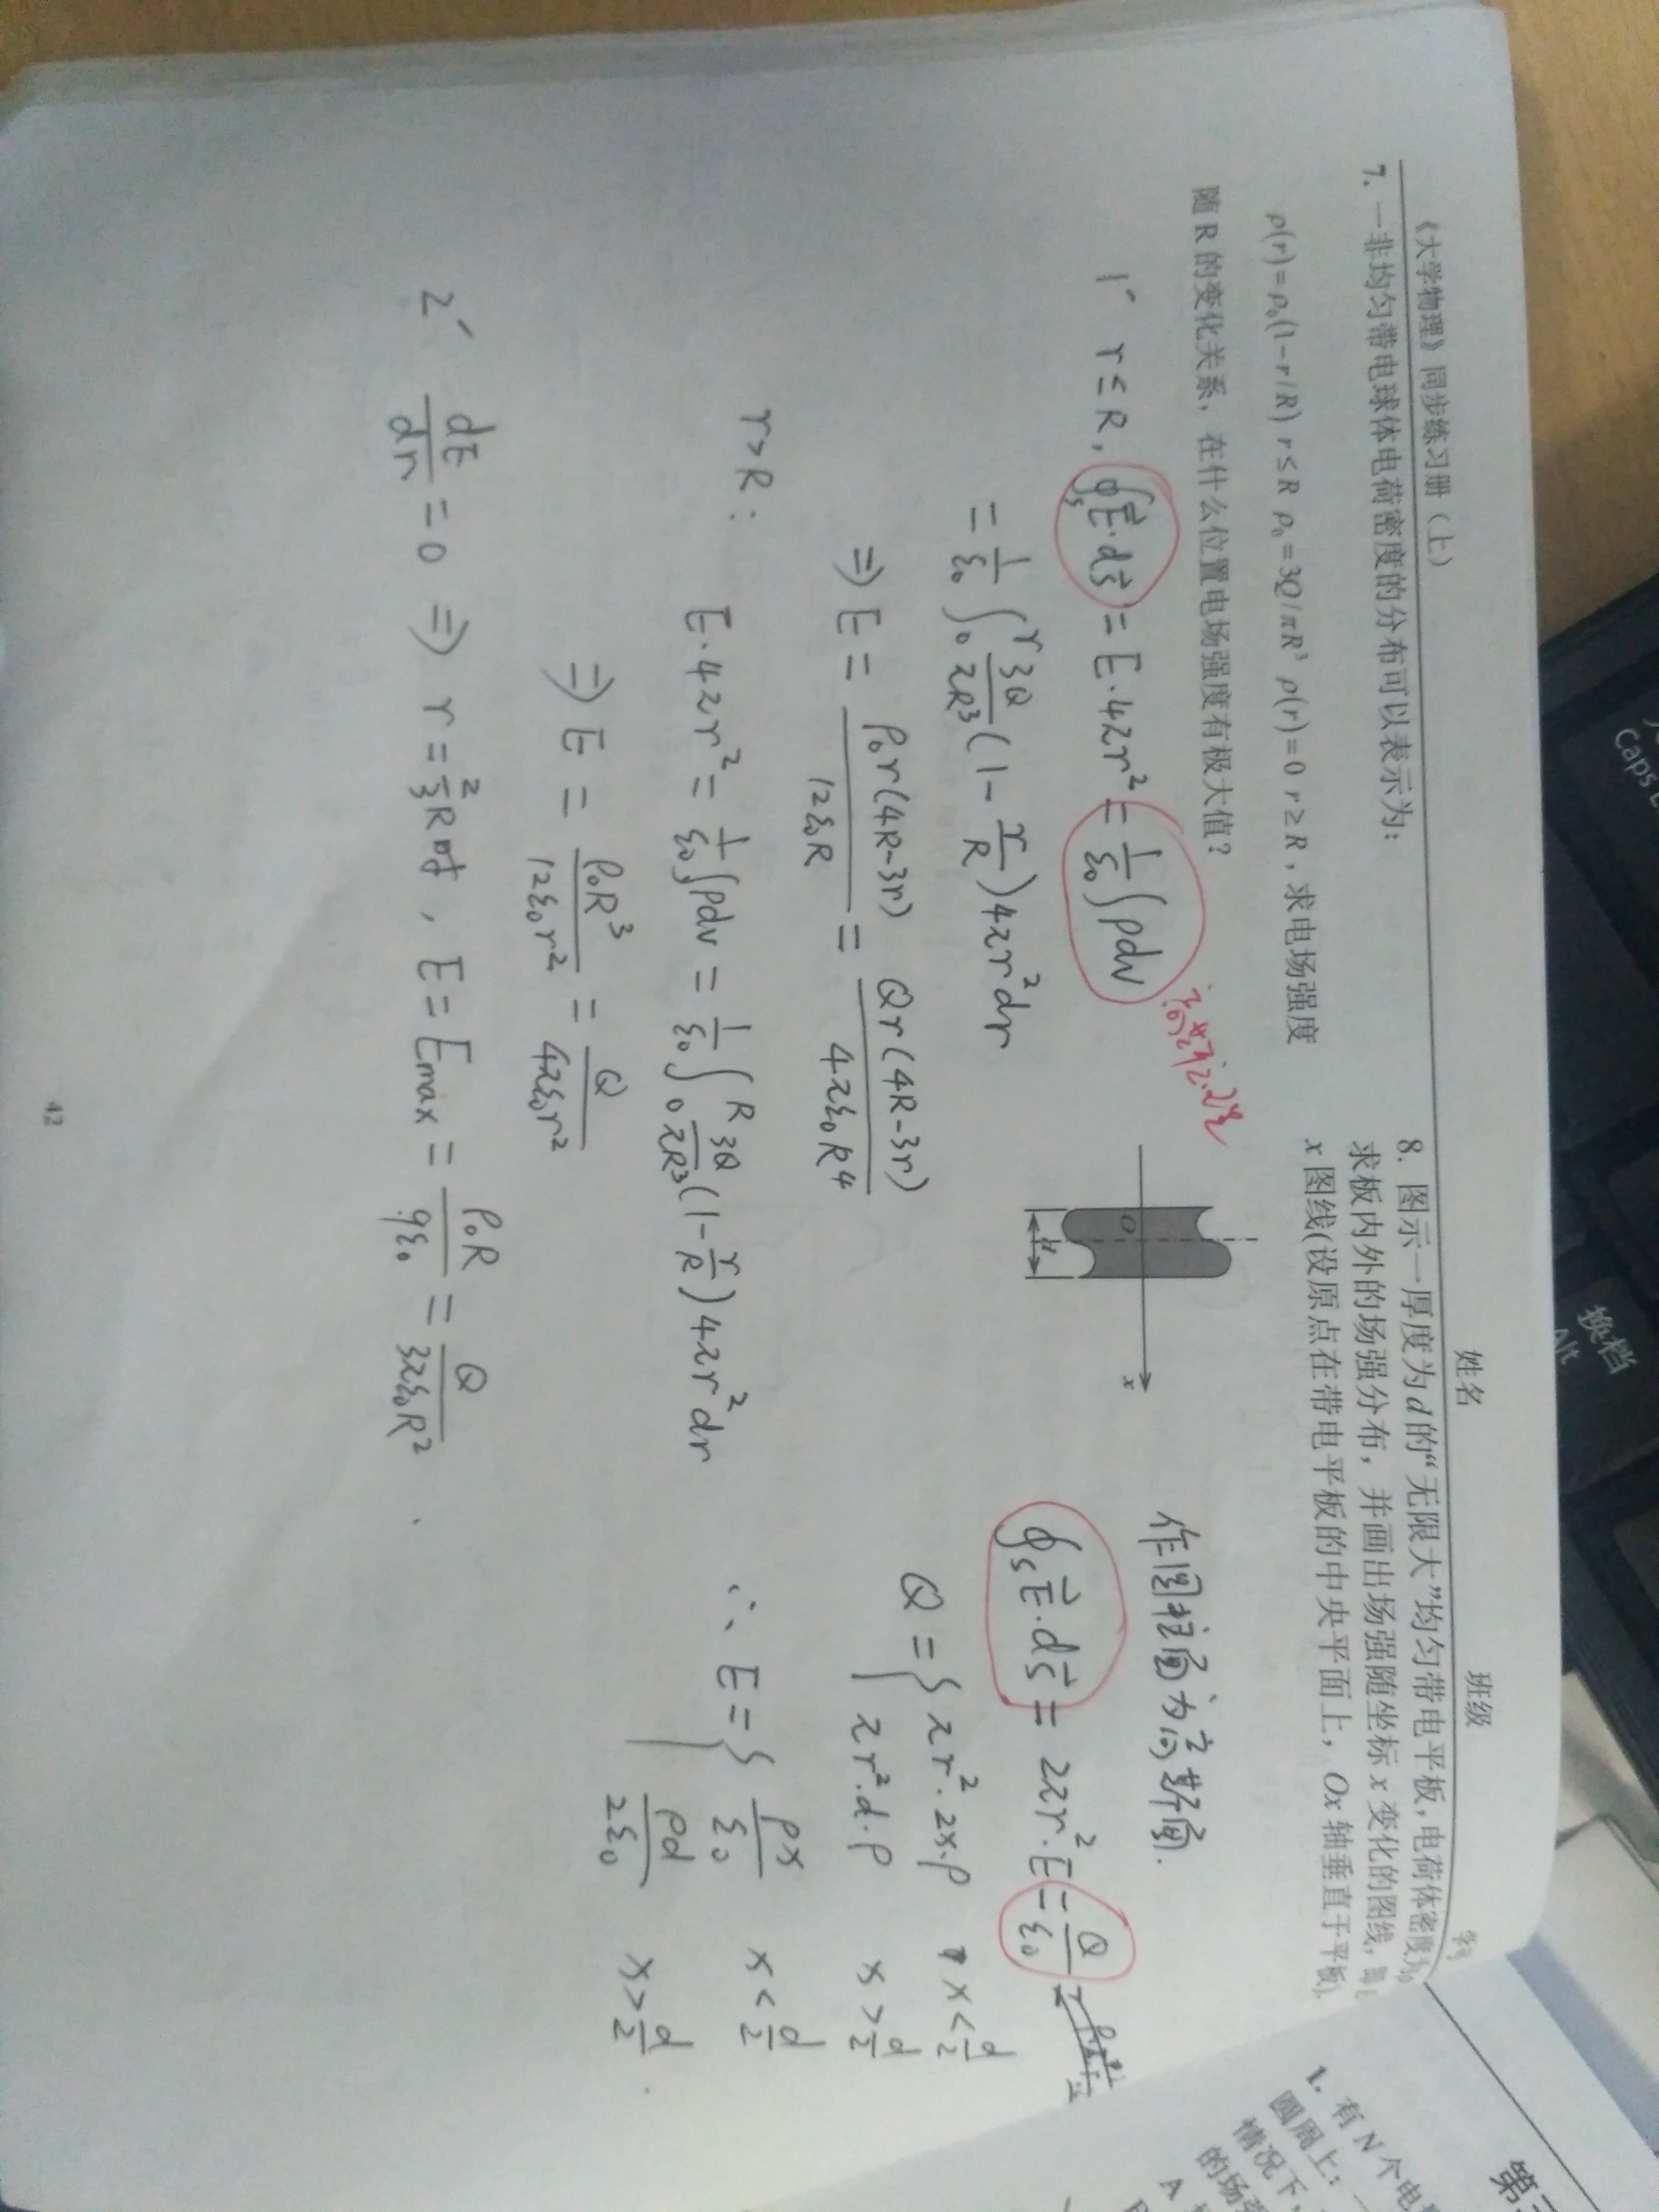 《大学物理》同步练习册（上）
姓名
班级
7. 一非均匀带电球体电荷密度的分布可以表示为：
ρ(r)=ρ₀(1-r/R) r≤R ρ₀=3Q/πR³ ρ(r)=0 r≥R，求电场强度
随 R 的变化关系，在什么位置电场强度有极大值？
1' r≤R, ∮ₛE⃗·dS⃗ = E·4πr² = 1/ε₀ ∫ρdv
高斯定理
= 1/ε₀ ∫₀ʳ 3Q/πR³ (1- r/R) 4πr²dr
⇒ E = ρ₀r(4R-3r)/12ε₀R = Qr(4R-3r)/4πε₀R⁴
r>R:
E·4πr² = 1/ε₀ ∫ρdv = 1/ε₀ ∫₀ᴿ 3Q/πR³ (1- r/R) 4πr²dr
⇒ E = ρ₀R³/12ε₀r² = Q/4πε₀r²
2' dE/dr = 0 ⇒ r = 2/3 R时, E = Emax = ρ₀R/9ε₀ = Q/3πε₀R².
8. 图示一厚度为d的“无限大”均匀带电平板，电荷体密度为ρ
求板内外的场强分布，并画出场强随坐标 x 变化的图线，即
x 图线(设原点在带电平板的中央平面上，Ox 轴垂直于平板).
O
x
d
作圆柱面为高斯面.
∮ₛE⃗·dS⃗ = 2πr²·E = Q/ε₀
Q = { πr²·2x·ρ x<d/2
πr²·d·ρ x>d/2
∴ E = { ρx/ε₀ x<d/2
ρd/2ε₀ x>d/2.
42
Caps
换档
Alt
1. 有 N 个电
圆周上：一
情况下，
的场
A